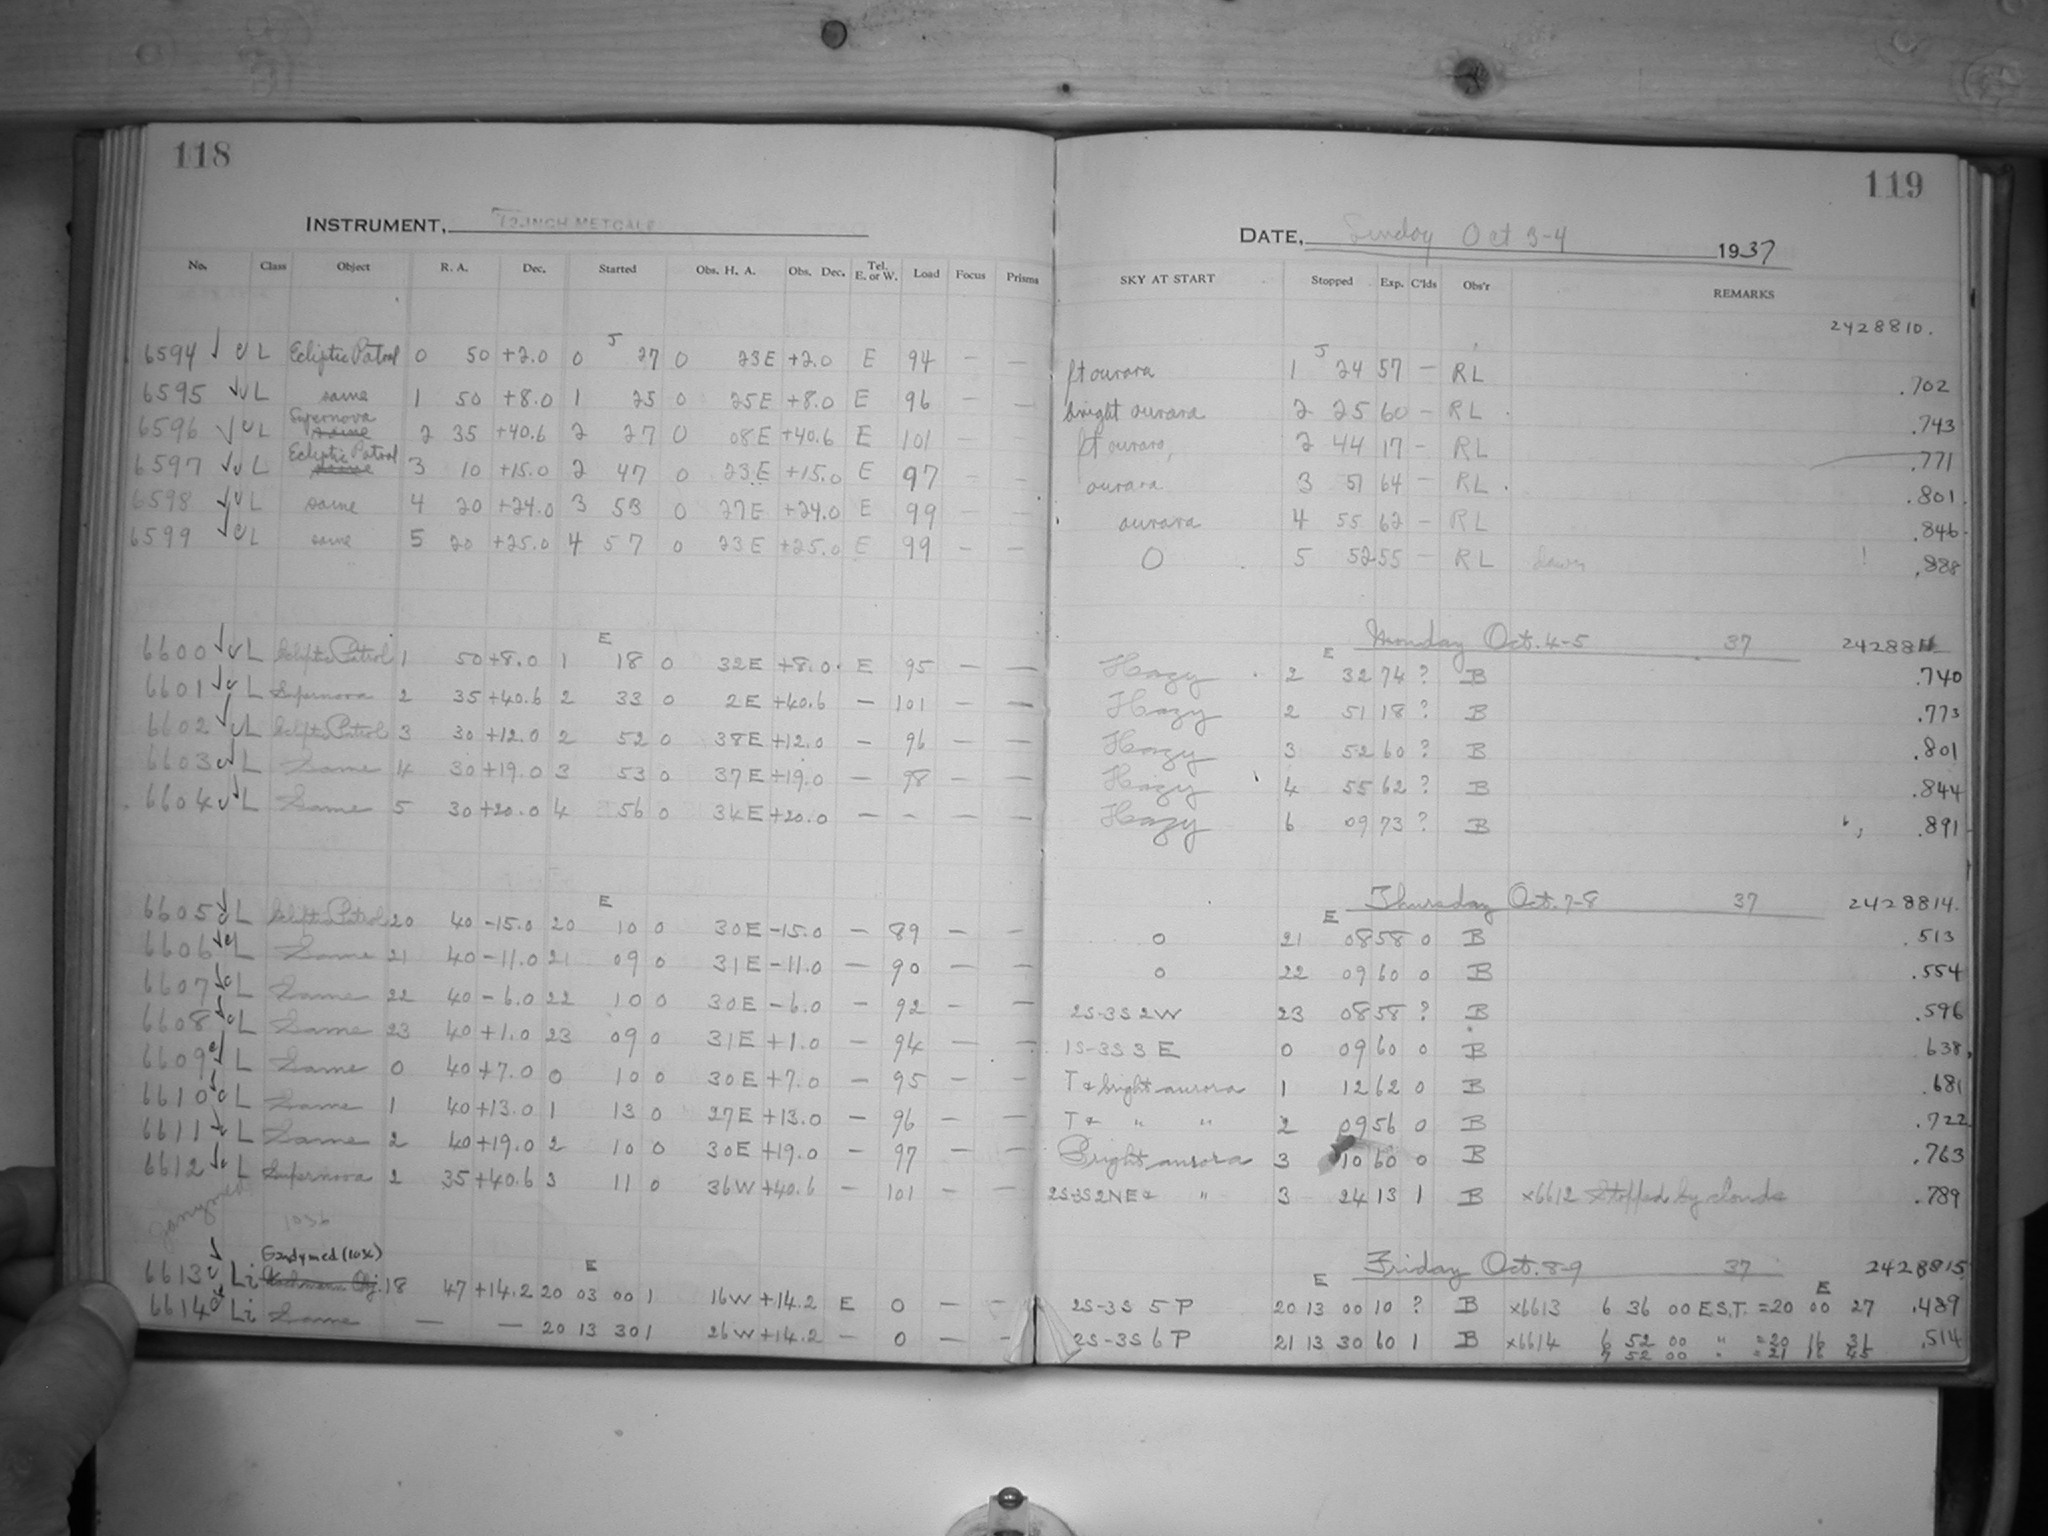 118
INSTRUMENT, 12-INCH METCALF
No. Class Object R. A. Dec. Started Obs. H. A. Obs. Dec. Tel. E. or W. Load Focus Prisms
6594 L Ecliptic Patrol 0 50 +2.0 0 27 0 23E +2.0 E 94 — —
6595 L same 1 50 +8.0 1 25 0 25E +8.0 E 96 — —
6596 L Supernova 2 35 +40.6 2 27 0 08E +40.6 E 101 — —
6597 L Ecliptic Patrol 3 10 +15.0 2 47 0 23E +15.0 E 97 — —
6598 L same 4 20 +24.0 3 53 0 27E +24.0 E 99 — —
6599 L same 5 20 +25.0 4 57 0 23E +25.0 E 99 — —
E
6600 L Ecliptic Patrol 1 50 +8.0 1 18 0 32E +8.0 E 95 — —
6601 L Supernova 2 35 +40.6 2 33 0 2E +40.6 — 101 — —
6602 L Ecliptic Patrol 3 30 +12.0 2 52 0 38E +12.0 — 96 — —
6603 L Same 4 30 +19.0 3 53 0 37E +19.0 — 98 — —
6604 L Same 5 30 +20.0 4 56 0 34E +20.0 — - — —
E
6605 L Ecliptic Patrol 20 40 -15.0 20 10 0 30E -15.0 — 89 — —
6606 L Same 21 40 -11.0 21 09 0 31E -11.0 — 90 — —
6607 L Same 22 40 -6.0 22 10 0 30E -6.0 — 92 — —
6608 L Same 23 40 +1.0 23 09 0 31E +1.0 — 94 — —
6609 L Same 0 40 +7.0 0 10 0 30E +7.0 — 95 — —
6610 L Same 1 40 +13.0 1 13 0 27E +13.0 — 96 — —
6611 L Same 2 40 +19.0 2 10 0 30E +19.0 — 97 — —
6612 L Supernova 2 35 +40.6 3 11 0 36W +40.6 — 101 — —
ganymed 1036
Gandymed (1036) E
6613 Li 18 47 +14.2 20 03 00 1 16W +14.2 E 0 — —
6614 Li Same — — 20 13 30 1 26W +14.2 — 0 — —
119
DATE, Sunday Oct 3-4 1937
SKY AT START Stopped Exp. C'lds Obs'r REMARKS
2428810.
ft aurara 1 24 57 — RL .702
bright aurara 2 25 60 — RL .743
ft aurara, 2 44 17 — RL .771
aurara 3 51 64 — RL .801
aurara 4 55 62 — RL .846
0 5 52 55 — RL dawn .888
E Monday Oct. 4-5 37 2428811
Hazy 2 32 74 ? B .740
Hazy 2 51 18 ? B .773
Hazy 3 52 60 ? B .801
Hazy 4 55 62 ? B .844
Hazy 6 09 73 ? B .891
E Thursday Oct. 7-8 37 2428814.
0 21 08 58 0 B .513
0 22 09 60 0 B .554
2S-3S 2W 23 08 58 ? B .596
1S-3S 3E 0 09 60 0 B .638
T & bright aurora 1 12 62 0 B .681
T & " " 2 09 56 0 B .722
Bright aurora 3 10 60 0 B .763
2S-3S 2NE & " 3 24 13 1 B x6612 Stopped by clouds .789
E Friday Oct. 8-9 37 2428815
2S-3S 5P 20 13 00 10 ? B x6613 6 36 00 E.S.T. = 20 00 27 .489
2S-3S 6P 21 13 30 60 1 B x6614 6 52 00 " = 20 16 31 .514
7 52 00 " = 21